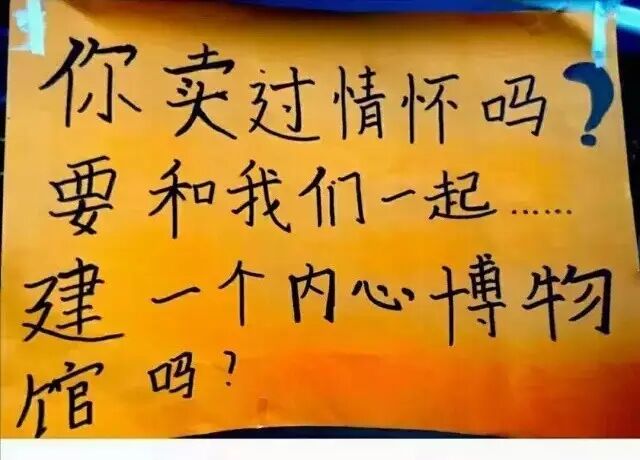 你卖过情怀吗?
要和我们一起……
建一个内心博物
馆吗?